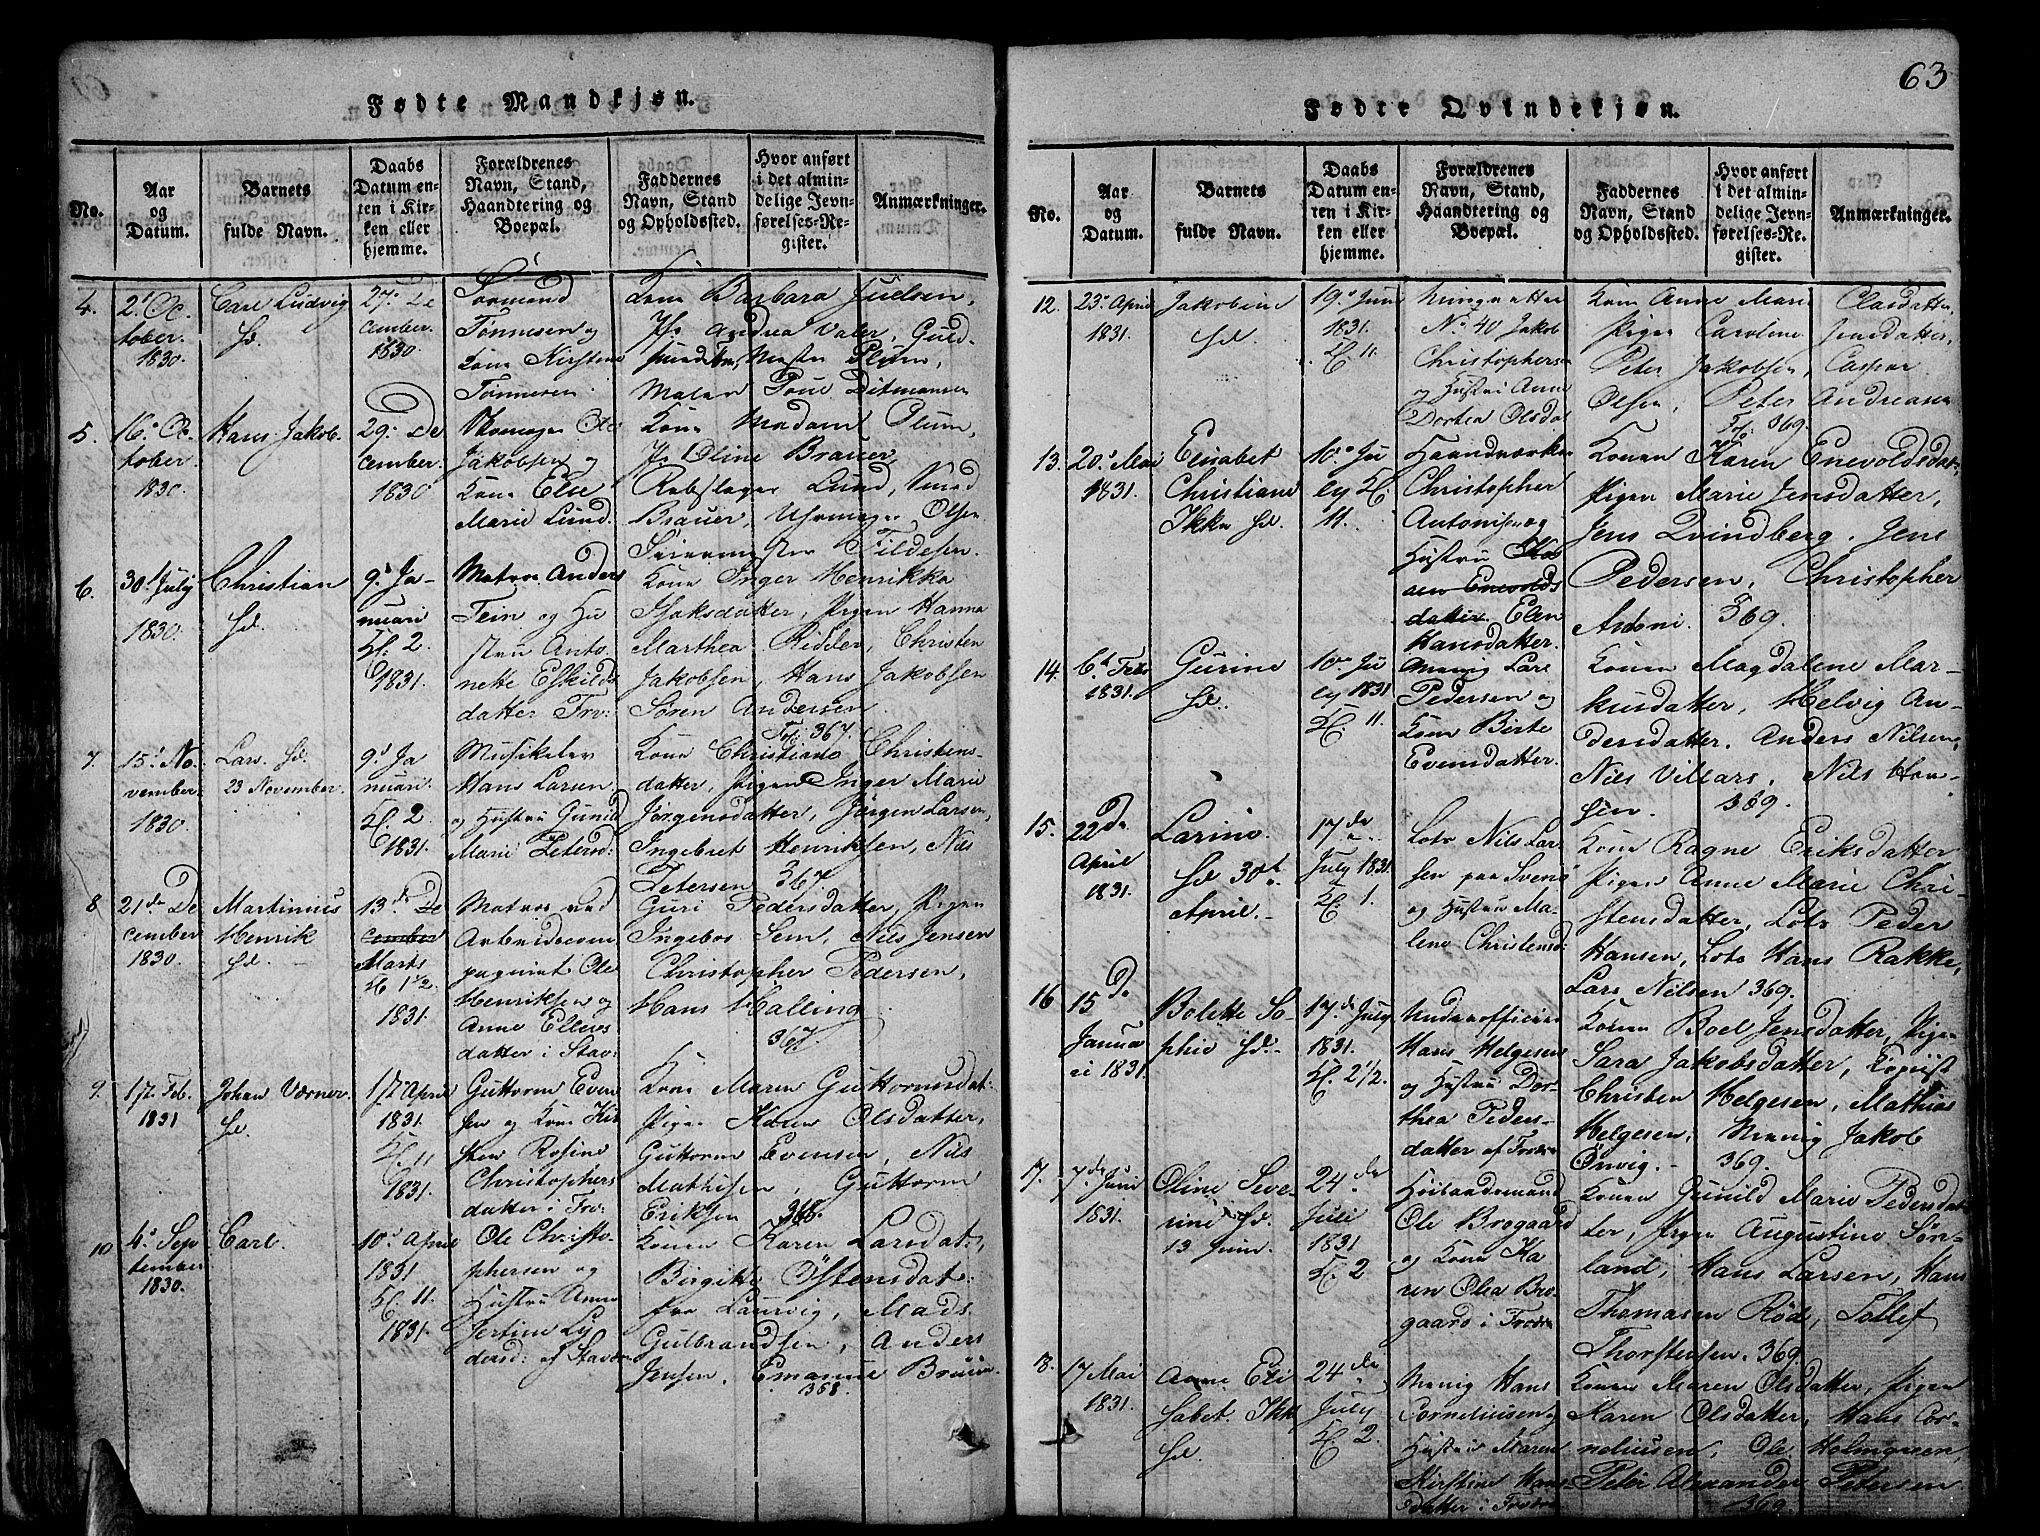 63
Fødte Mandkjøn.
No.
Aar
og
Datum.
Barnets
fulde Navn.
Daabs
Datum en-
ten i Kir-
ken eller
hjemme.
Forældrenes
Navn, Stand,
Haandtering og
Boepæl.
Faddernes
Navn, Stand
og Opholdssted.
Hvor anført
i det almin-
delige Jevn-
førelses-Re-
gister.
Anmærkninger.
4.
2d Oc
tober.
1830.
Carl Ludvig
hd.
27. De
cember.
1830
Sørmand
Tønnesen og
Kone Kirstene
Tønnesen.
Kone Barbara Juelsen,
Jfr Andrea Valer, Guld-
Plum,
Maler Poul Ditmansen
5.
16. Oc
tober.
1830.
Hans Jakob.
29. De
cember.
1830
Skomager Ole
Jakobsen og
Kone Elie
Marie Lund.
Kone Madam Plum,
Jfr Oline Brauer,
Rebslager Lund, Knud
Brauer, Uhrmager Olsen
6.
30. July
1830.
Christian
hd.
9. Ja-
nuari
Kl. 2
1831.
Matros Anders
Tein og Hu
stru Anto
nette Eskilds
datter Fro:
Kone Inger Henrikka
Isaksdatter, Pigen Hanna
Marthea Ridder, Christen
Jakobsen, Hans Jakobsen
Søren Andersen
Fol 367.
7.
15. No
vember.
1830.
Lars. hd.
23 November.
9d Ja
nuari
Kl. 2.
1831.
Musikelev
Hans Larsen
og Hustru Gunild
Marie Petersd:
Kone Christiane Christens-
datter, Pigen Inger Marie
Jørgensdatter, Jørgen Larsen,
Ingebret Henriksen, Nils
Petersen 367.
8
21de De
cember
1830.
Martinus
Henrik
hd.
13. De
cember
Marts
Kl 1½.
1831.
Matros ved
Arbeidscom
pagniet Ole
Henriksen og
Anne Ellevs
datter i Stav:
Guri Pedersdatter, Pigen
Ingebor Sem, Nils Jensen
Christopher Pedersen,
Hans Halling
367.
9.
17. Feb.
1831
Johan Værner
hd.
17. April
1831.
Kl. 11
1831.
Guttorm Even
sen og Kone Kir
sten Rosine
Christophers
datter i Fro:
Kone Maren Guttormsdat:
Pigen Karen Olsdatter,
Guttorm Evensen, Nils
Mathisen, Guttorm
Eriksen 368.
10
4. Sep
tember
1830.
Carl.
10. April
1831
Kl. 11.
1831.
Ole Christo-
phersen og
Hustru Anne
Jertine Ly
dersd: af Stavern
Konen Karen Larsdat:,
Birgitte Østensdat:
fra Laurvig, Mads
Gulbrandsen, Anders
Jensen, Emanuel Bruun
368.
Fødte Qvindekjøn.
No.
Aar
og
Datum.
Barnets
fulde Navn.
Daabs
Datum en-
ten i Kir-
ken eller
hjemme.
Forældrenes
Navn, Stand,
Haandtering og
Boepæl.
Faddernes
Navn, Stand
og Opholdssted.
Hvor anført
i det almin-
delige Jevn-
førelses-Re-
gister.
Anmærkninger.
12.
23. April
1831.
Jakobine
hd.
19. Juni
1831.
Kl. 11.
No 40 Jakob
Christophersen
og Hustru Anne
Dortea Olsdat
Kone Anne Marie Clasdatter,
Pigen Caroline Jensdatter,
Peter Jakobsen, Caspar
Olsen, Peter Andreasen
Fol 369.
13.
20. Mai
1831.
Elisabet
Christiane
Ikke hd.
10. Ju
ly Kl.
11.
Haandværker
Christopher
Antonisen og
Hustru Ka
ren Enevolds
datter Elen
Hansdatter.
Konen Karen Enevoldsdat:,
Pigen Marie Jensdatter,
Jens Qvindberg, Jens
Pedersen, Christopher
Antoni. 369.
14.
6. Feb
1831.
Gurine
hd.
10. Ju
ly 1831
Kl. 11.
Menig Lars
Pedersen og
Kone Birte
Evensdatter.
Konen Magdalene Mar-
kusdatter, Helvig An-
dersdatter, Anders Nilsen,
Nils Villars, Nils Han-
sen. 369.
15.
22de
April
1831.
Larine.
hd 30te
April.
17de
July 1831
Kl. 1.
Lots Nils Lar
sen paa Svenør
og Hustru Ma-
lene Christensd:
Kone Ragne Eriksdatter
Pigen Anne Marie Chri-
stensdatter, Lots Peder
Hansen, Lots Hans Rakke,
Lars Nilsen 369.
16
15de
Janua
ri 1831.
Bolette So-
phie hd.
17de July
1831.
Kl. 2½.
Underofficier
Hans Helgesen
og Hustru Dor-
thea Peders-
datter af Fredr
Konen Boel Jensdatter, Pigen
Sara Jakobsdatter, Copiist
Christen Helgesen, Mathias
Helgesen, Menig Jakob
Ørvig. 369.
17.
7de Juni
1831.
Oline Seve-
rine hd.
13 Juni.
24de
Juli
1831
Kl. 2
Ole Brogaard
og Kone Ka
ren Olea Bro-
gaard i Fredr
Konen Gunild Marie Pedersdat
ter, Pigen Augustine Søn-
land, Hans Larsen, Hans
Thomasen Rød, Tollef
Thorstensen. 369.
18.
7 Mai
1831.
Anne Eli
sabet. Ikke
hd.
24de
July
Kl. 2.
Menig Hans
Corneliusen og
Hustru Maren
Kirstine Hans
datter i Fredr
Konen Maren Olsdatter, Pigen
Karen Olsdatter, Hans Cor-
neliusen, Ole Holmgreen,
Peter Alexander Petersen
369